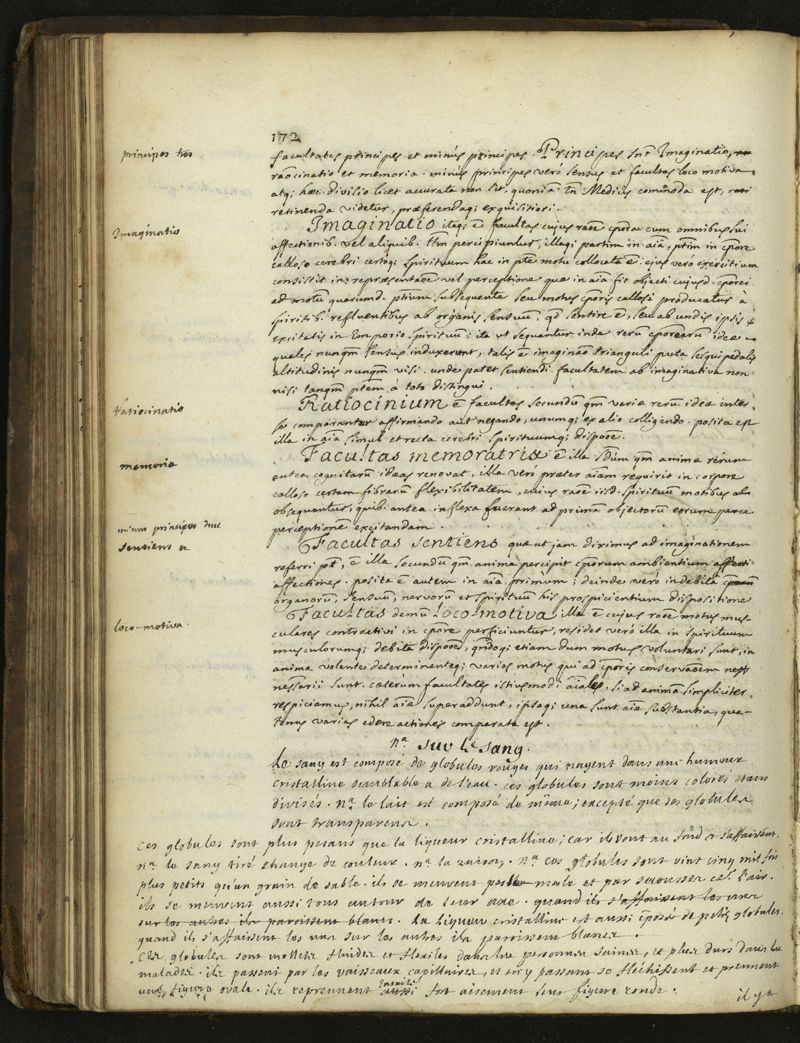 172
principes tres
facultates principes et minus principes. Principes sunt Imaginatio,
ratiocinatio et memoria. minus principes vero sensus et facultas loco motiva
atq; haec divisio licet accurata non sit, quonia tn Medicis commoda est,
retinenda videtur, praeferendaq; exquisitiori.
Imaginatio
Imaginatio itaq; ē facultas cujus raõe cum omnibus sui
affectionib. vel aliquib. percipiuntur, illaq; partim in aiā, ptim in cpore
calloso cerebri certoq; spirituum hac in pte motu collocata ē: ejus vero exercitium
consistit in repraesentatõe vel perceptione qua in aiā fit objecti cujusd. cporei
ad motū quorumd. ptium subsequente seu motus cporis callosi producatur à
spiritib. refluentibus ab organis sensuum, qd sentire ē, seu ab undis ipsis
excitatis in Emporio spirituū: ita ut sequantur inde rerū cporearū ideae
quales nunqm sensus induxerunt, talis ē imaginaõ trianguli puta sesquipedalis
altitudinis nunqm visi. unde patet sentiendi facultatem ab imaginativa non
nisi tanqm ptem a toto distingui.
Ratiocinatio
Ratiocinium ē facultas secundū qm variae rerū ideae inter
se comparantur affirmando aut negando, unumq; ex alio colligendo. posita est
illa in aiā simul et recta cerebri spirituumq; dispoõe.
memoria
Facultas memoratrix ē illa sdum qm anima rerum
antea cognitarū ideas renovat, illa vero praeter aiam requirit in corpore
calloso certam fibrarum flexibilitatem, cujus raõe iisd. spirituum motibus
obsequantur, quib. antea inflexa fuerant ad prima objectorū eorum perce
perceptionē excitandam.
minus principes duae
sentiens et
Facultas sentiens quae ut jam diximus ad imaginationem
referri pt, ē illa secundum qm anima percipit cporum ambientium
affectiones. posita ē autem in aiā primum; deinde vero in debita
organorū, sensuū, nervorū et spirituū his prospicientium dispositione
loco-motiva.
Facultas demū loco-motiva illa ē cujus raõe motus mus-
culares contractivi in cpore perficiuntur, residet vero illa in spirituum
musculorumq; debita dispoõe, qndoq; etiam dum motus voluntarii sunt, in
anima volente determinanteq; varios motus qui ad cporis conservaõem
nessarii sunt. caeterum facultates istius modi aiales, si ad animā simpliciter
respiciamus, nihil aiae superaddunt, ipsaq; una sunt aiae substantia, qua-
tenus varias edere actiones comparata est.
na sur le sang.
Le sang est composé de globules rouges qui nagent dans une humeur
cristalline semblable a de l'eau. ces globules sont moins colorés etans
divisés. na le lait est composé de meme; excepté que ses globules
sont transparens.
ces globules sont plus pesans que la liqueur cristalline; car ils vont au fond et s'affaissent.
na le sang tiré change de couleur. na la raison. na ces globules sont vint cinq mil fois
plus petits qu'un grain de sable. ils se meuvent et par secousses
ils se meuvent aussi tous autour de leur axe. quand ils s'affaissent les uns
sur les autres ils paroissent blancs. la liqueur cristalline est aussi de petits globules.
quand ils s'affaissent les uns sur les autres ils paroissent blancs.
ces globules sont mollets fluides et flexiles dans les personnes saines, et plus durs dans les
malades. ils passent par les vaisseaux capillaires, et en y passant se fléchissent et prennent
une figure ovale. ils reprennent ensuite fort aisement leur figure ronde.
il y a